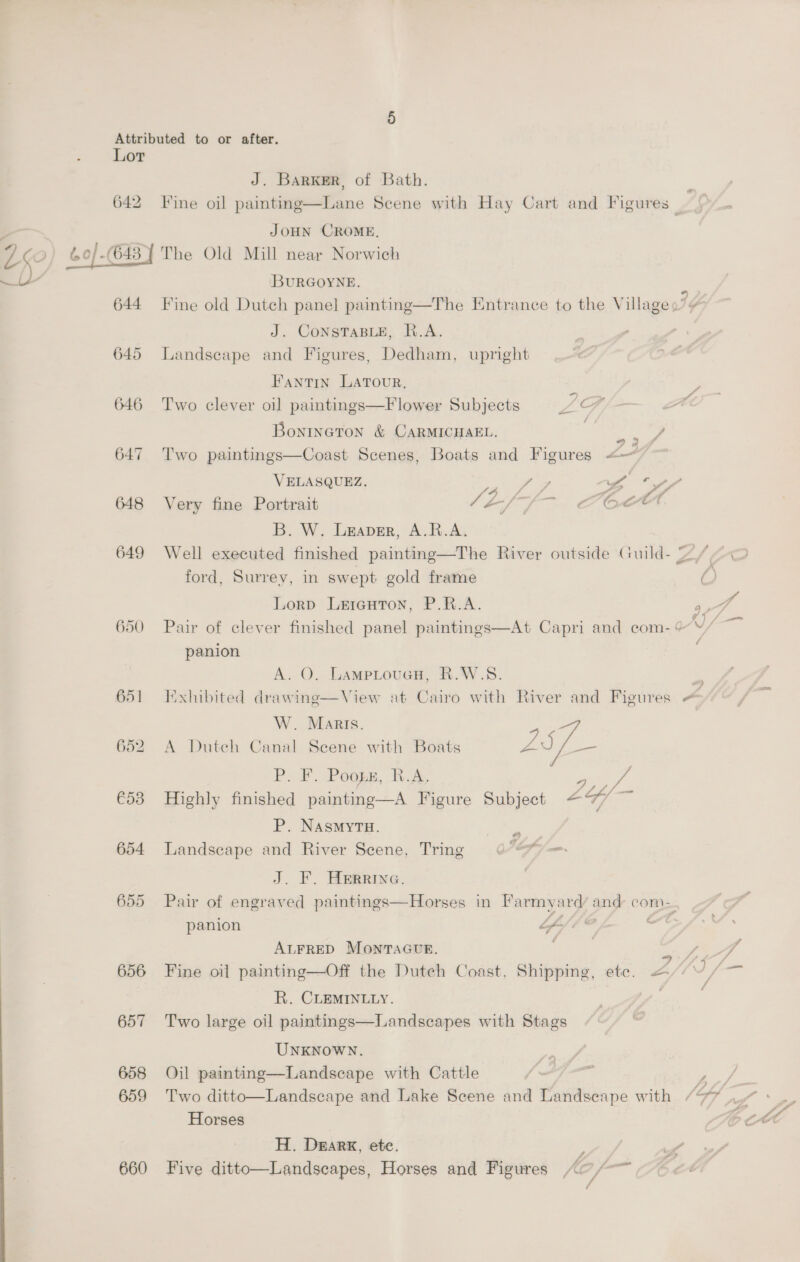 5
Attributed to or after.
Lot
J. Barker, of Bath.
642 Fine oil painting—Lane Scene with Hay Cart and Figures
John Crome.
60/- 643 { The Old Mill near Norwich
Burgoyne.
644 Fine old Dutch panel painting—The Entrance to the Village
J. Constable, R.A.
645 Landscape and Figures, Dedham, upright
Fantin Latour.
646 Two clever oil paintings—Flower Subjects
Bonington & Carmichael.
647 Two paintings—Coast Scenes, Boats and Figures
Velasquez.
648 Very fine Portrait
B. W. Leader, A.R.A.
649 Well executed finished painting—The River outside Guild-
ford, Surrey, in swept gold frame
Lord Leighton, P.R.A.
650 Pair of clever finished panel paintings—At Capri and com-
panion
A. O. Lamplough, R.W.S.
651 Exhibited drawing—View at Cairo with River and Figures
W. Maris.
652 A Dutch Canal Scene with Boats 25/-
P. F. Poole, R.A.
653 Highly finished painting—A Figure Subject
P. Nasmyth.
654 Landscape and River Scene, Tring
J. F. Herring.
655 Pair of engraved paintings—Horses in Farmyard and com-
panion
Alfred Montague.
656 Fine oil painting—Off the Dutch Coast. Shipping, etc.
R. Cleminlly.
657 Two large oil paintings—Landscapes with Stags
Unknown.
658 Oil painting—Landscape with Cattle
659 Two ditto—Landscape and Lake Scene and Landscape with
Horses
H. Deark, etc.
660 Five ditto—Landscapes, Horses and Figures